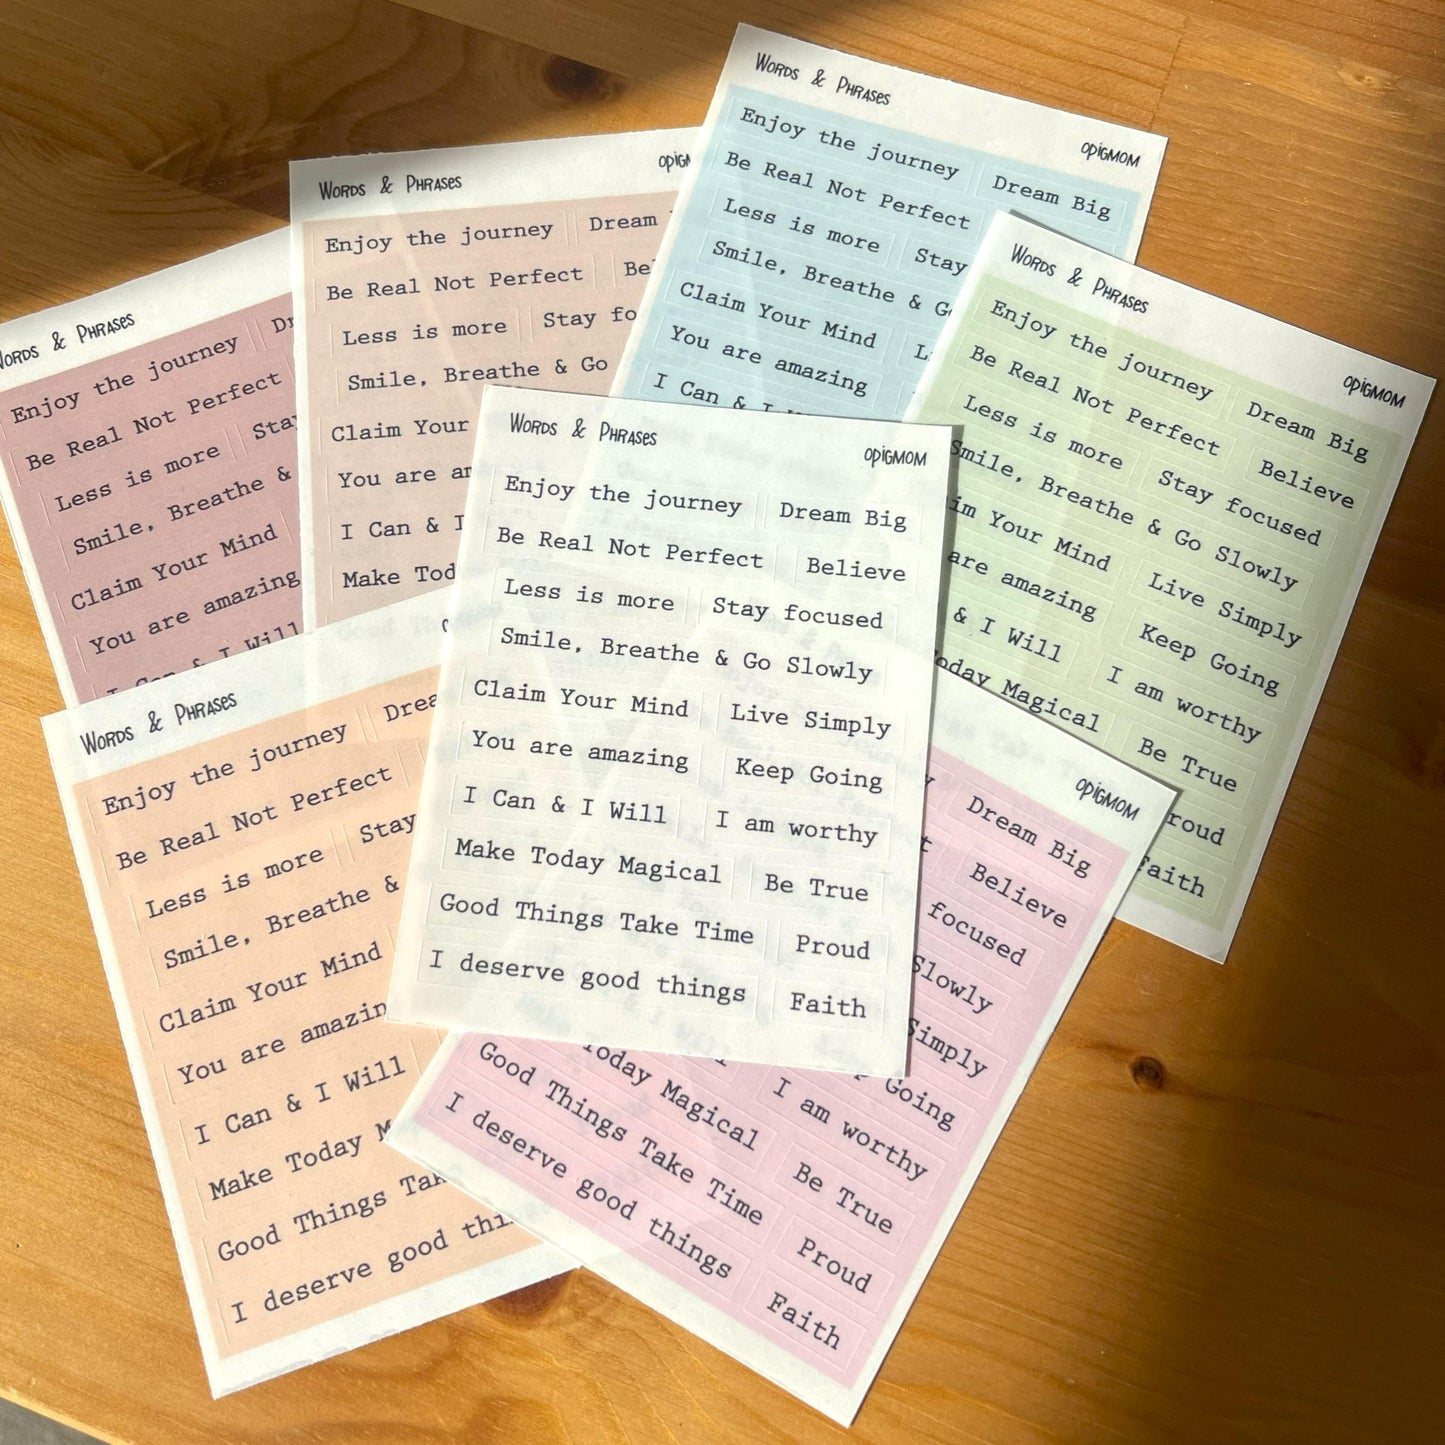 Words & Phrases
opigmom
Enjoy the journey Dream Big
Be Real Not Perfect
Less is more Stay
Smile, Breathe &
Claim Your Mind
You are amazing
I Can &
Words & Phrases
Enjoy the journey Dream
Be Real Not Perfect
Less is more Stay
Smile, Breathe & Go
Claim Your
You are
I Can &
Make
Words & Phrases
opigmom
Enjoy the journey Dream Big
Be Real Not Perfect Believe
Less is more Stay focused
Smile, Breathe & Go Slowly
Your Mind Live Simply
are amazing Keep Going
& I Will I am worthy
Today Magical Be True
Faith
Words & Phrases
Enjoy the journey
Be Real Not Perfect
Less is more Stay
Smile, Breathe &
Claim Your Mind
You are amazing
I Can & I Will
Words & Phrases
opigmom
Enjoy the journey Dream Big
Be Real Not Perfect Believe
Less is more Stay focused
Smile, Breathe & Go Slowly
Claim Your Mind Live Simply
You are amazing Keep Going
I Can & I Will I am worthy
Make Today Magical Be True
Good Things Take Time Proud
I deserve good things Faith
Words & Phrases
Enjoy the journey
Be Real Not Perfect
Less is more Stay
Smile, Breathe &
Claim Your Mind
You are
I Can & I Will
Make Today
Good Things
I deserve good
opigmom
Dream Big
Believe
focused
Slowly
Simply
Going
Today Magical I am worthy
Good Things Take Time Be True
I deserve good things Proud
Faith